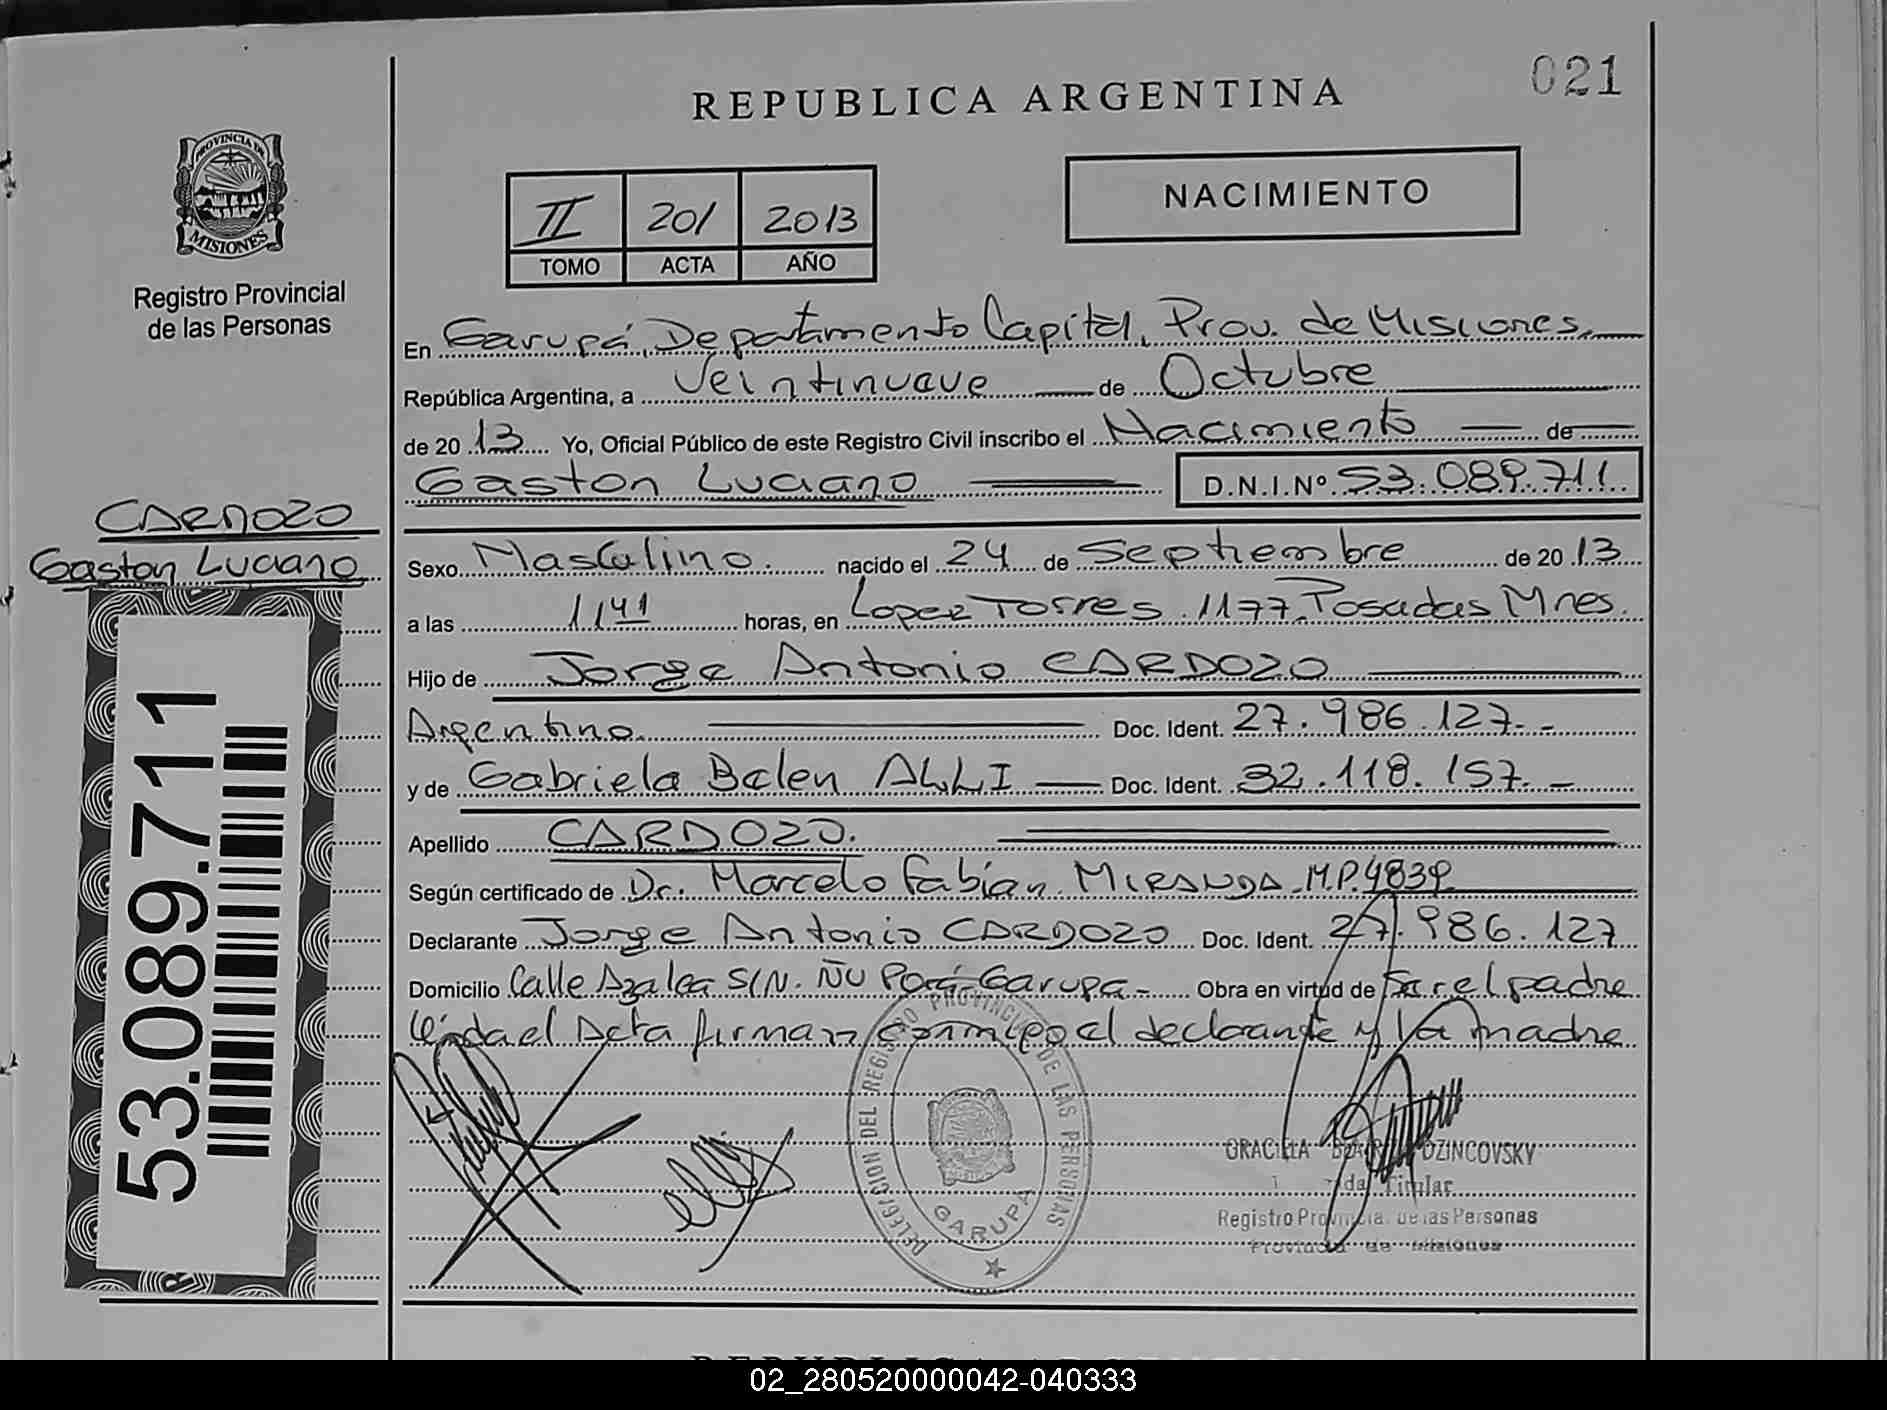 021
REPUBLICA ARGENTINA
PROVINCIA DE
MISIONES
Registro Provincial
de las Personas
II 201 2013
TOMO ACTA AÑO
NACIMIENTO
En Garupá, Departamento Capital, Prov. de Misiones.
República Argentina, a Veintinueve de Octubre
de 20 13 Yo, Oficial Público de este Registro Civil inscribo el Nacimiento de
Gaston Luciano D.N.I.Nº 53.089.711
CARDOZO
Gaston Luciano
53.089.711
Sexo Masculino. nacido el 24 de Septiembre de 20 13
a las 11 41 horas, en Lopez Torres 1177. Posadas Mnes.
Hijo de Jorge Antonio CARDOZO
Argentino. Doc. Ident. 27.986.127.-
y de Gabriela Belen ALLI Doc. Ident. 32.118.157.-
Apellido CARDOZO.
Según certificado de Dr. Marcelo Fabián MIRANDA M.P.4839
Declarante Jorge Antonio CARDOZO Doc. Ident. 27.986.127
Domicilio Calle Azalea S/N. ÑU Porá-Garupa- Obra en virtud de Ser el padre
Leída el Acta firman conmigo el declarante y la madre
DELEGACION DEL REGISTRO PROVINCIAL DE LAS PERSONAS
GARUPA
GRACIELA DZINCOVSKY
Titular
Registro Provincial de las Personas
Provincia de Misiones
REPUBLICA ARGENTINA
02_280520000042-040333